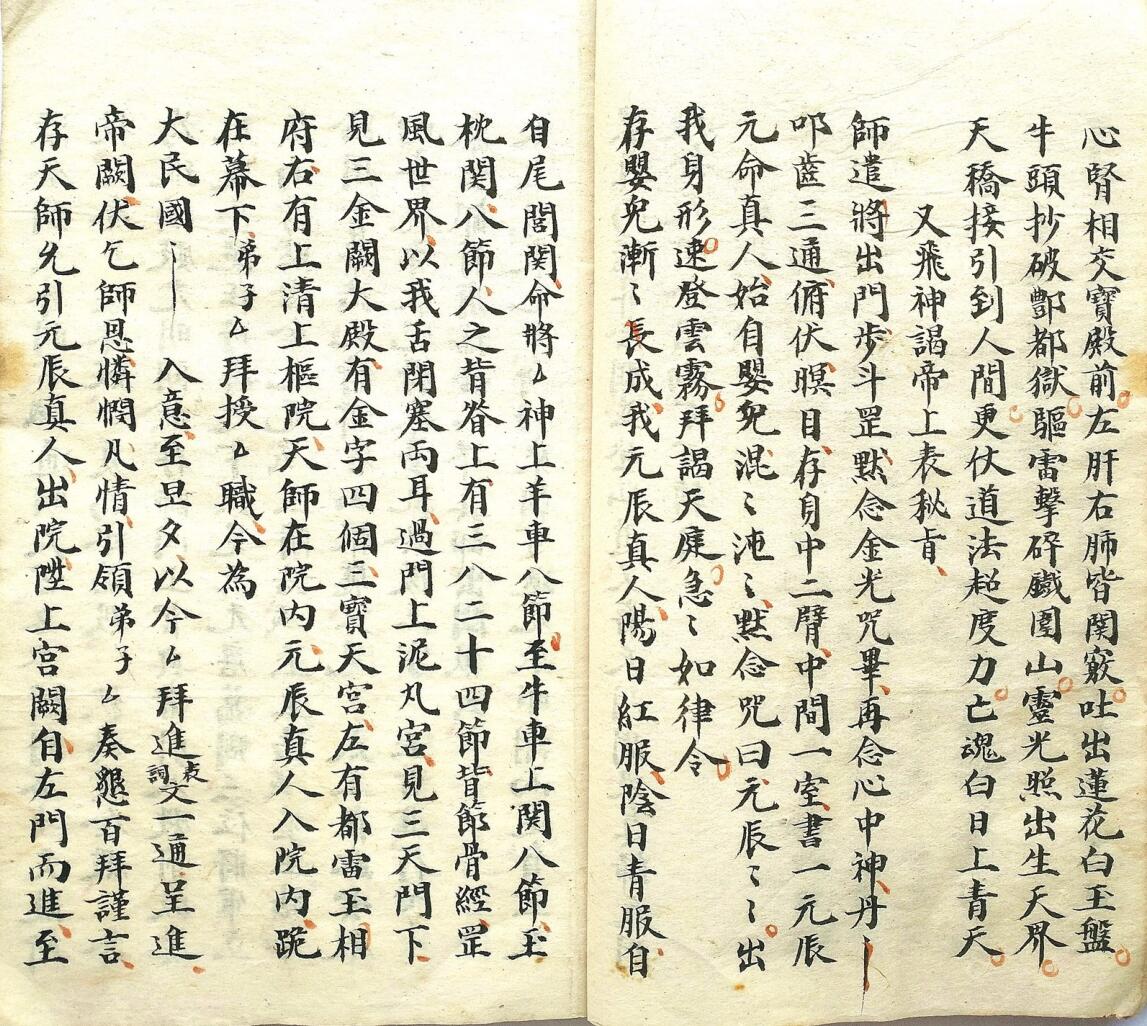 心腎相交寶殿前左肝右肺皆関竅吐出蓮花白玉盤
牛頭抄破酆都獄驅雷擊碎鐵圍山靈光照出生天界
天橋接引到人間更仗道法超度力亡魂白日上青天
又飛神謁帝上表秘旨
師遣將出門步斗罡默念金光咒畢再念心中神丹
叩齒三通俯伏瞑目存身中二腎中間一室書一元辰
元命真人始自嬰兒混〻沌〻默念咒曰元辰〻〻出
我身形速登雲霧拜謁天庭急〻如律令
存嬰兒漸〻長成我元辰真人陽日紅服陰日青服自
自尾閭関命將厶神上羊車八節至牛車上関八節玉
枕関八節人之背脊上有三八二十四節皆節骨經罡
風世界以我舌閉塞両耳過門上泥凡宮見三天門下
見三金闕大殿有金字四個三寶天宮左有都雷玉相
府右有上清上樞院天師在院內元辰真人入院內跪
在幕下弟子厶拜授厶職今為
大民國 入意至旦夕以今厶拜進表詞文一通呈進
帝闕伏乞師恩憐憫凡情引領弟子厶奏懇百拜謹言
存天師允引元辰真人出院陞上宮闕自左門而進至